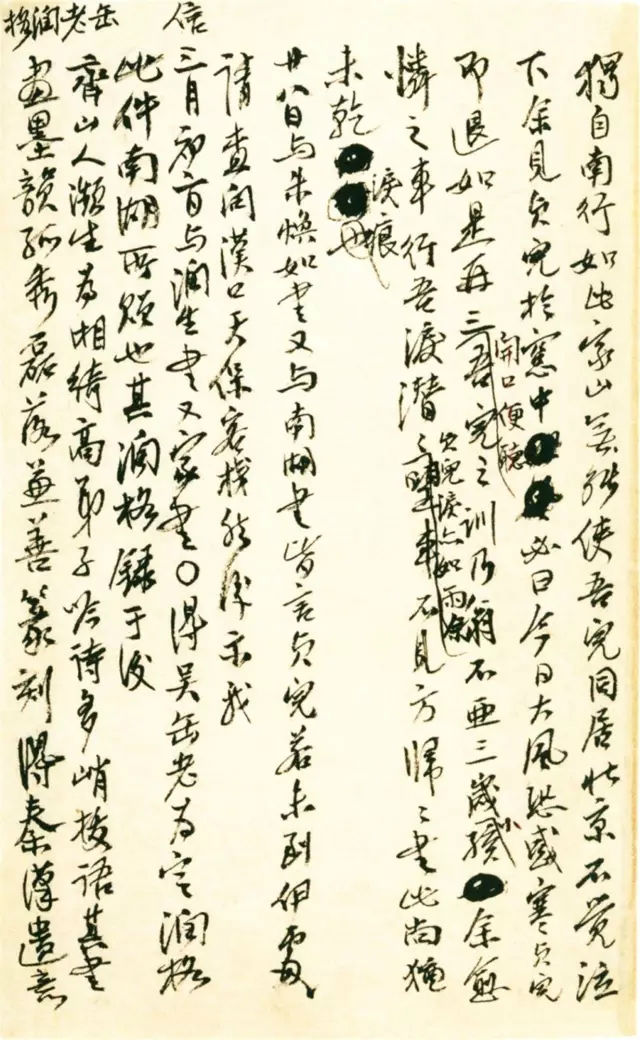 獨自南行如此家山無能使吾兒同居北京不覺泣
下余見貞兒於窻中必曰今日大風恐感寒貞兒
開口便聽
即退如是再三吾兒之訓乃翁不亞三歲孺余愈
小
貞兒淚亦如雨
憐之車行吾淚潸車不見方歸〻書此尚猶
淚痕
未乾也
廿八日與朱煥如書又與南湖書皆言貞兒若未到伊處
請查問漢口天保客棧然後示我
信
三月初二日與潤生書又家書〇得吳缶老為定潤格
此件南湖所煩也其潤格錄于後
缶老潤格
齊山人瀕生為湘綺高弟子吟詩多峭拔語其書
畫墨韻孤秀磊落兼善篆刻得秦漢遺意